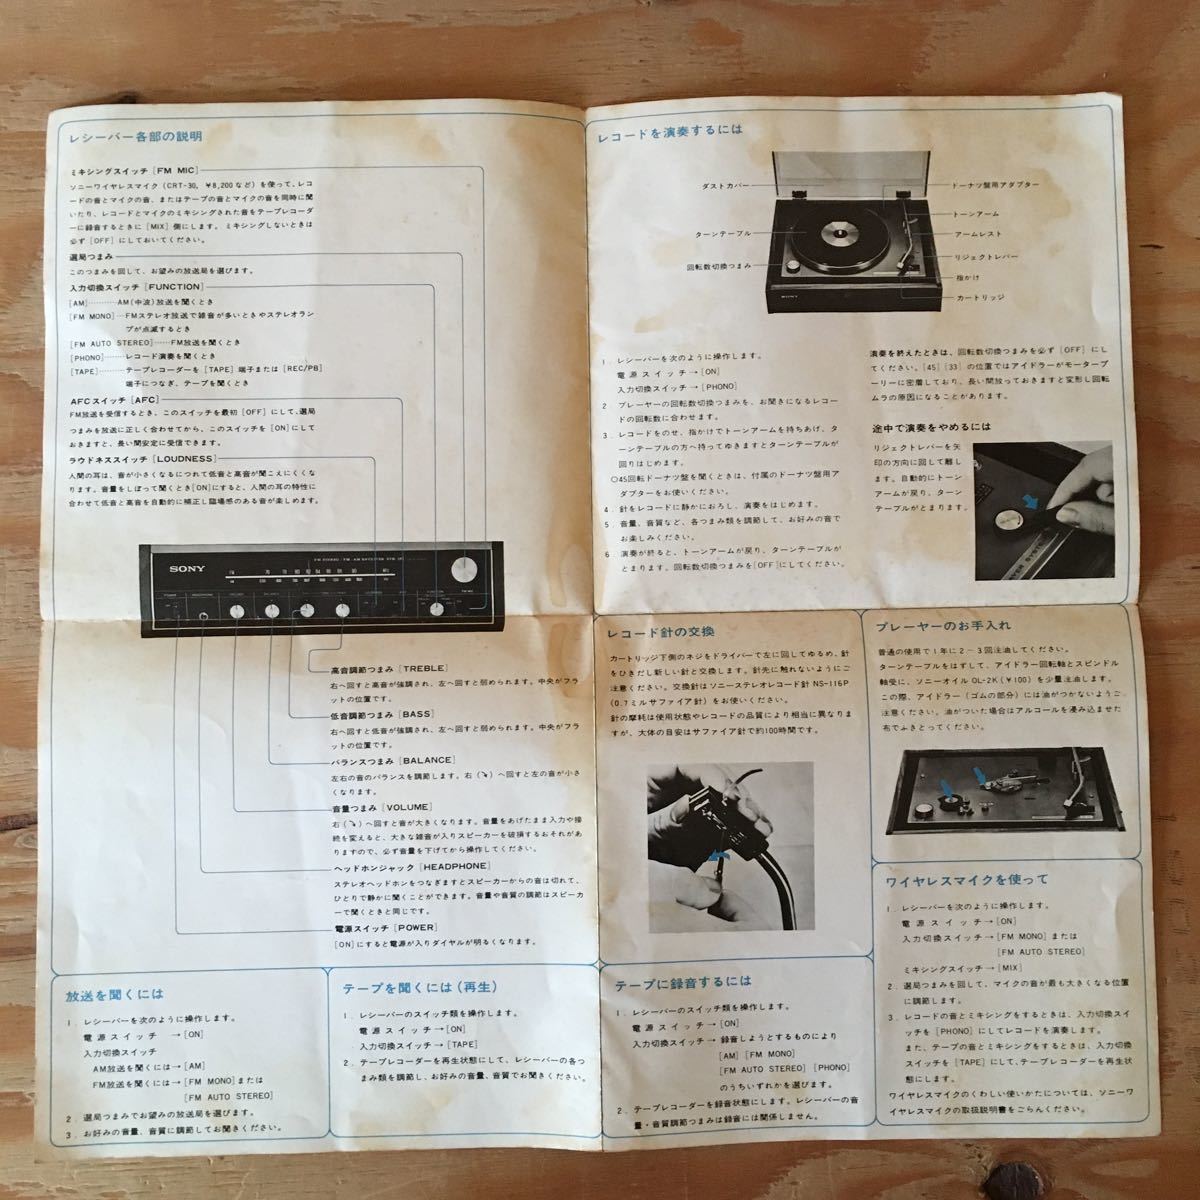 レシーバー各部の説明
ミキシングスイッチ [FM MIC]
ソニーワイヤレスマイク (CRT-30, ￥8,200など) を使って、レコ
ードの音とマイクの音、またはテープの音とマイクの音を同時に聞
いたり、レコードとマイクのミキシングされた音をテープレコーダ
ーに録音するときに [MIX] 側にします。ミキシングしないときは
必ず [OFF] にしておいてください。
選局つまみ
このつまみを回して、お望みの放送局を選びます。
入力切換スイッチ [FUNCTION]
[AM]…………AM(中波)放送を聞くとき
[FM MONO]…FMステレオ放送で雑音が多いときやステレオラン
プが点滅するとき
[FM AUTO STEREO]……FM放送を聞くとき
[PHONO]………レコード演奏を聞くとき
[TAPE]…………テープレコーダーを [TAPE] 端子または [REC/PB]
端子につなぎ、テープを聞くとき
AFCスイッチ [AFC]
FM放送を受信するとき、このスイッチを最初 [OFF] にして、選局
つまみを放送に正しく合わせてから、このスイッチを [ON] にして
おきますと、長い間安定に受信できます。
ラウドネススイッチ [LOUDNESS]
人間の耳は、音が小さくなるにつれて低音と高音が聞こえにくくな
ります。音量をしぼって聞くとき[ON]にすると、人間の耳の特性に
合わせて低音と高音を自動的に補正し臨場感のある音が楽しめます。
SONY
高音調節つまみ [TREBLE]
右へ回すと高音が強調され、左へ回すと弱められます。中央がフラ
ットの位置です。
低音調節つまみ [BASS]
右へ回すと低音が強調され、左へ回すと弱められます。中央がフラ
ットの位置です。
バランスつまみ [BALANCE]
左右の音のバランスを調節します。右 (↷) へ回すと左の音が小さ
くなります。
音量つまみ [VOLUME]
右 (↷) へ回すと音が大きくなります。音量をあげたまま入力や接
続を変えると、大きな雑音が入りスピーカーを破損するおそれがあ
りますので、必ず音量を下げてから操作してください。
ヘッドホンジャック [HEADPHONE]
ステレオヘッドホンをつなぎますとスピーカーからの音は切れて、
ひとりで静かに聞くことができます。音量や音質の調節はスピーカ
ーで聞くときと同じです。
電源スイッチ [POWER]
[ON]にすると電源が入りダイヤルが明るくなります。
放送を聞くには
1. レシーバーを次のように操作します。
電源スイッチ →[ON]
入力切換スイッチ
AM放送を聞くには→[AM]
FM放送を聞くには→[FM MONO]または
[FM AUTO STEREO]
2. 選局つまみでお望みの放送局を選びます。
3. お好みの音量、音質に調節してお聞きください。
テープを聞くには(再生)
1. レシーバーのスイッチ類を操作します。
電源スイッチ→[ON]
入力切換スイッチ→[TAPE]
2. テープレコーダーを再生状態にして、レシーバーの各つ
まみ類を調節し、お好みの音量、音質でお聞きください。
レコードを演奏するには
ダストカバー
ドーナツ盤用アダプター
トーンアーム
ターンテーブル
アームレスト
リジェクトレバー
回転数切換つまみ
指かけ
カートリッジ
SONY
1. レシーバーを次のように操作します。
電源スイッチ→[ON]
入力切換スイッチ→[PHONO]
2. プレーヤーの回転数切換つまみを、お聞きになるレコー
ドの回転数に合わせます。
3. レコードをのせ、指かけでトーンアームを持ちあげ、タ
ーンテーブルの方へ持ってゆきますとターンテーブルが
回りはじめます。
○45回転ドーナツ盤を聞くときは、付属のドーナツ盤用ア
ダプターをお使いください。
4. 針をレコードに静かにおろし、演奏をはじめます。
5. 音量、音質など、各つまみ類を調節して、お好みの音で
お楽しみください。
6. 演奏が終ると、トーンアームが戻り、ターンテーブルが
とまります。回転数切換つまみを[OFF]にしてください。
演奏を終えたときは、回転数切換つまみを必ず [OFF] にし
てください。[45] [33] の位置ではアイドラーがモータープ
ーリーに密着しており、長い間放っておきますと変形し回転
ムラの原因になることがあります。
途中で演奏をやめるには
リジェクトレバーを矢
印の方向に回して離し
ます。自動的にトーン
アームが戻り、ターン
テーブルがとまります。
レコード針の交換
カートリッジ下側のネジをドライバーで左に回してゆるめ、針
をひきだし新しい針と交換します。針先に触れないようにご
注意ください。交換針はソニーステレオレコード針 NS-116P
(0.7ミルサファイア針) をお使いください。
針の摩耗は使用状態やレコードの品質により相当に異なりま
すが、大体の目安はサファイア針で約100時間です。
プレーヤーのお手入れ
普通の使用で1年に2～3回注油してください。
ターンテーブルをはずして、アイドラー回転軸とスピンドル
軸受に、ソニーオイル OL-2K (￥100) を少量注油します。
この際、アイドラー (ゴムの部分) には油がつかないようご
注意ください。油がついた場合はアルコールを浸み込ませた
布でふきとってください。
テープに録音するには
1. レシーバーのスイッチ類を操作します。
電源スイッチ→[ON]
入力切換スイッチ→録音しようとするものにより
[AM] [FM MONO]
[FM AUTO STEREO] [PHONO]
のうちいずれかを選びます。
2. テープレコーダーを録音状態にします。レシーバーの音
量・音質調節つまみは録音には関係しません。
ワイヤレスマイクを使って
1. レシーバーを次のように操作します。
電源スイッチ→[ON]
入力切換スイッチ→[FM MONO] または
[FM AUTO STEREO]
ミキシングスイッチ→[MIX]
2. 選局つまみを回して、マイクの音が最も大きくなる位置
に調節します。
3. レコードの音とミキシングをするときは、入力切換スイ
ッチを [PHONO] にしてレコードを演奏します。
また、テープの音とミキシングをするときは、入力切換
スイッチを [TAPE] にして、テープレコーダーを再生状
態にします。
ワイヤレスマイクのくわしい使いかたについては、ソニーワ
イヤレスマイクの取扱説明書をごらんください。